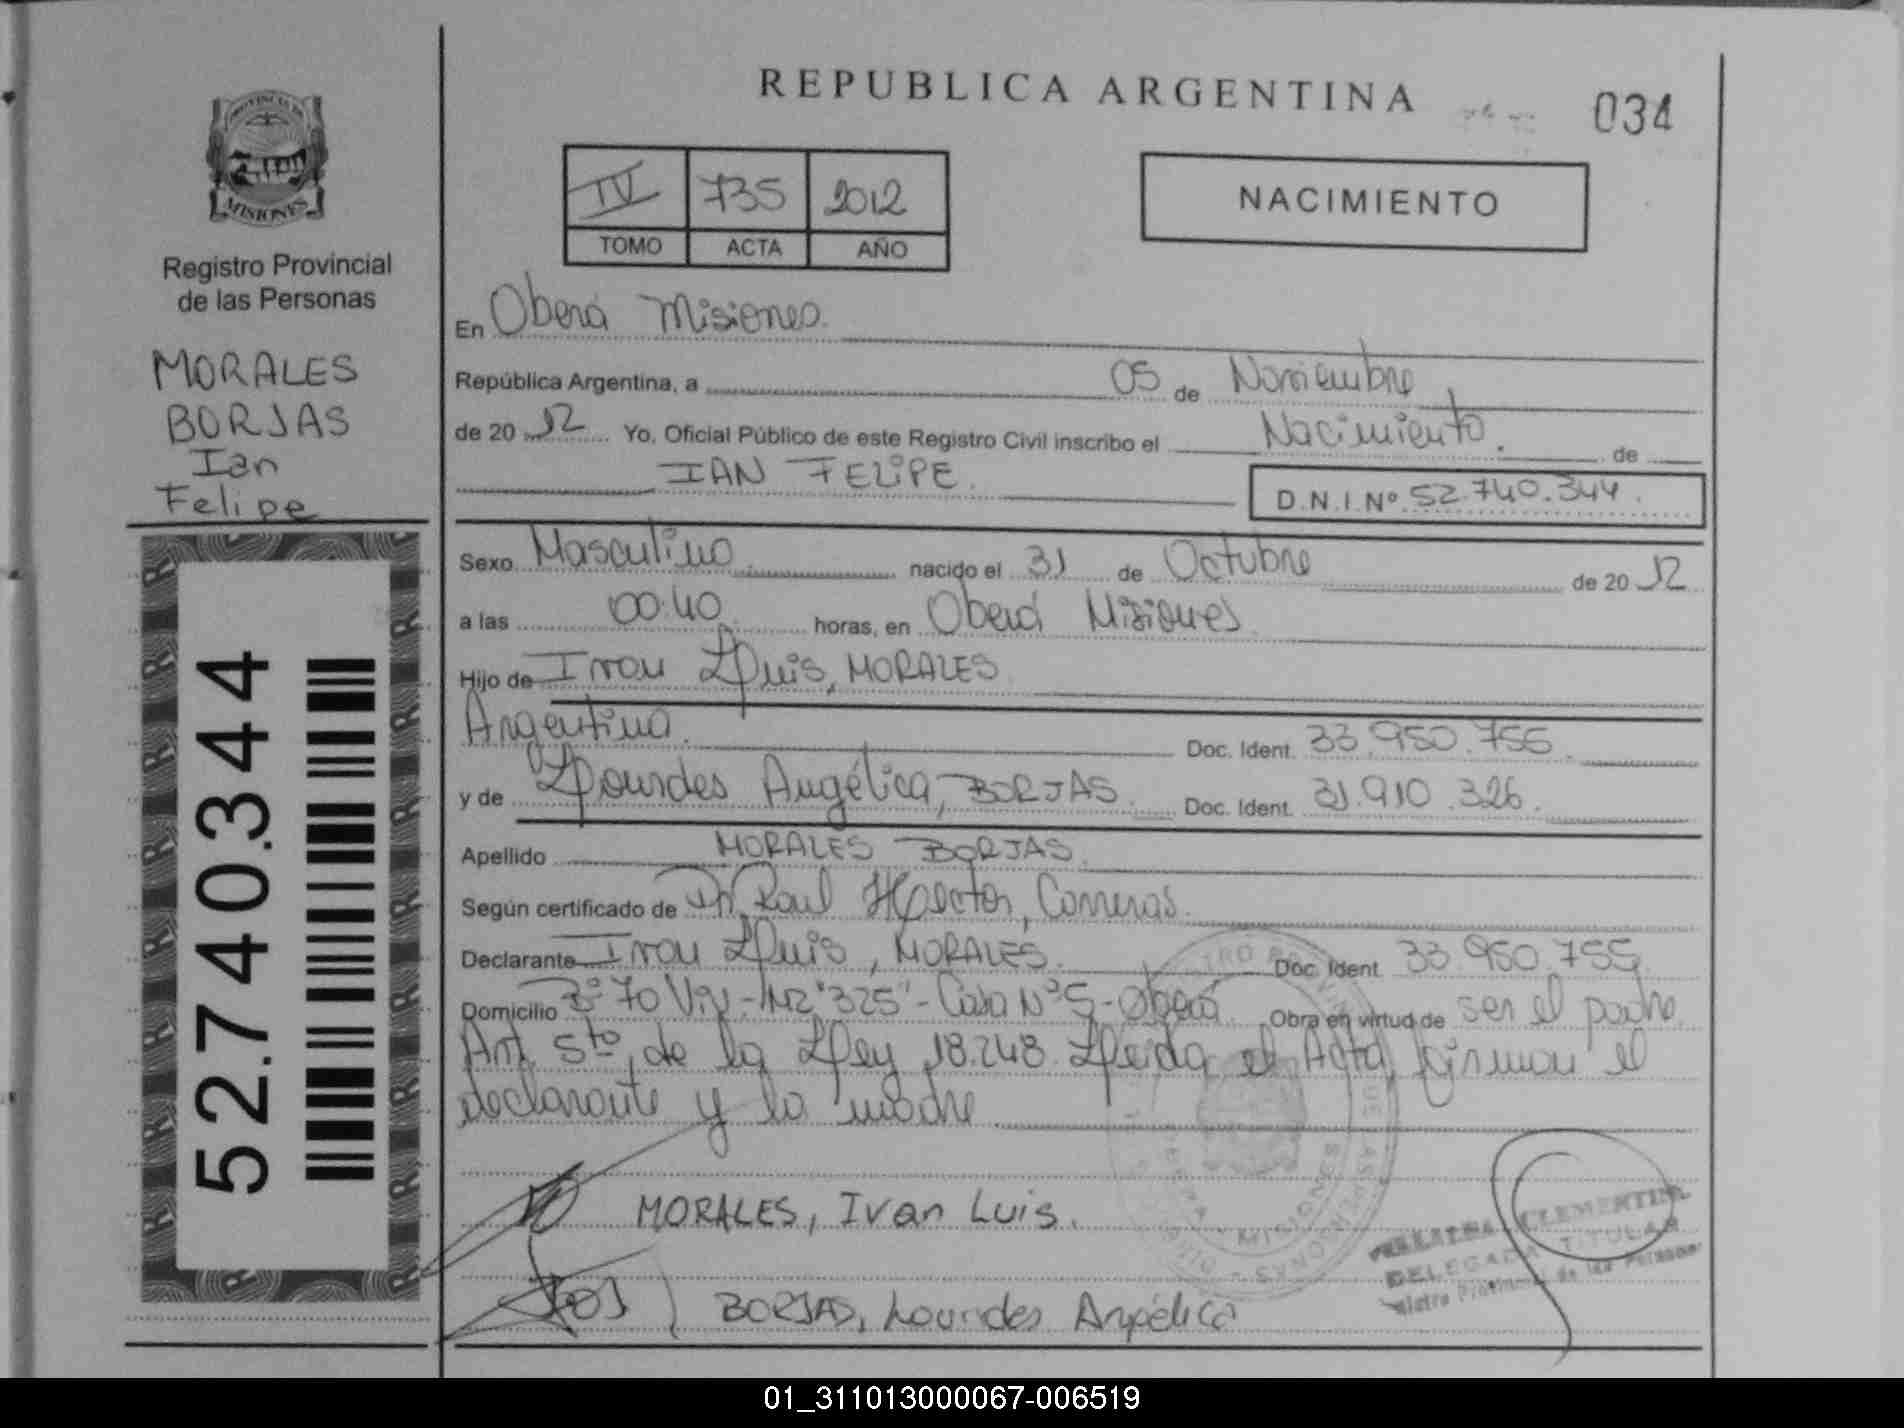 REPUBLICA ARGENTINA
034
PROVINCIA DE
MISIONES
Registro Provincial
de las Personas
MORALES
BORJAS
Ian
Felipe
52.740.344
IV 735 2012
TOMO ACTA AÑO
NACIMIENTO
En Oberá Misiones.
República Argentina, a 05 de Noviembre
de 20 12 Yo, Oficial Público de este Registro Civil inscribo el Nacimiento. de
IAN FELIPE. D.N.I.Nº 52.740.344.
Sexo Masculino nacido el 31 de Octubre de 20 12
a las 00:40 horas, en Oberá Misiones
Hijo de Ivan Luis, MORALES
Argentina. Doc. Ident. 33.950.755.
y de Lourdes Angélica, BORJAS. Doc. Ident. 31.910.326.
Apellido MORALES BORJAS.
Según certificado de Dr. Raul Hector, Correras.
Declarante Ivan Luis, MORALES. Doc. Ident 33.950.755
Domicilio Bº 70 Viv.-Mz "325"-Casa Nº5-Oberá Obra en virtud de ser el padre.
Art. 5to de la Ley 18.248. Leida el Acta, firman el
declarante y la madre
MORALES, Ivan Luis.
BORJAS, Lourdes Angélica
CLEMENTINA
DELEGADA TITULAR
Provincial de las Personas
01_311013000067-006519